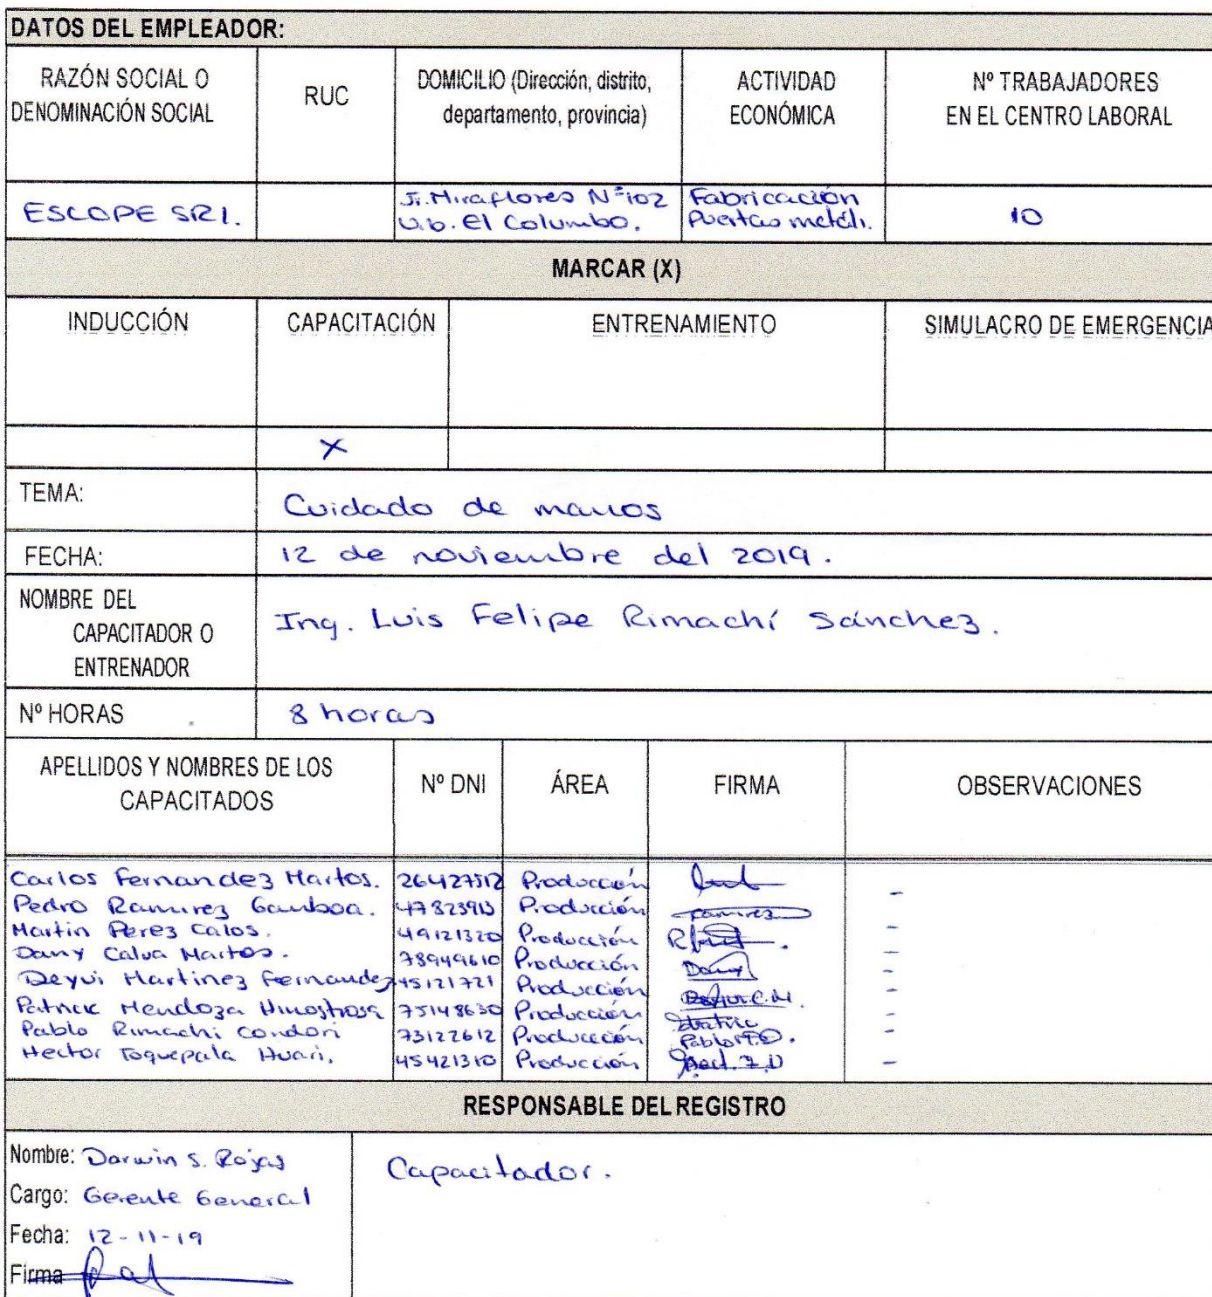 DATOS DEL EMPLEADOR:
RAZÓN SOCIAL O
DENOMINACIÓN SOCIAL
RUC
DOMICILIO (Dirección, distrito,
departamento, provincia)
ACTIVIDAD
ECONÓMICA
Nº TRABAJADORES
EN EL CENTRO LABORAL
ESCOPE SRL.
Jr. Miraflores Nº102
U.b. El Columbo.
Fabricación
Puertas metáli.
10
MARCAR (X)
INDUCCIÓN
CAPACITACIÓN
ENTRENAMIENTO
SIMULACRO DE EMERGENCIA
X
TEMA:
Cuidado de manos
FECHA:
12 de noviembre del 2019.
NOMBRE DEL
CAPACITADOR O
ENTRENADOR
Ing. Luis Felipe Rimachí Sánchez.
Nº HORAS
8 horas
APELLIDOS Y NOMBRES DE LOS
CAPACITADOS
Nº DNI
ÁREA
FIRMA
OBSERVACIONES
Carlos Fernandez Martos. 26427512 Producción -
Pedro Ramirez Gamboa. Producción Ramirez -
Martin Perez Calos. 49121320 Producción -
Dany Calva Martos. 78949610 Producción Dany -
Deyvi Martinez Fernandez 45121721 Producción -
Patrick Mendoza Hinostrosa 75148630 Producción -
Pablo Rimachi Condori 73122612 Producción Pablo -
Hector Toquepala Huari. 45421310 Producción -
RESPONSABLE DEL REGISTRO
Nombre: Darwin S. Rojas
Cargo: Gerente General
Fecha: 12-11-19
Firma
Capacitador.